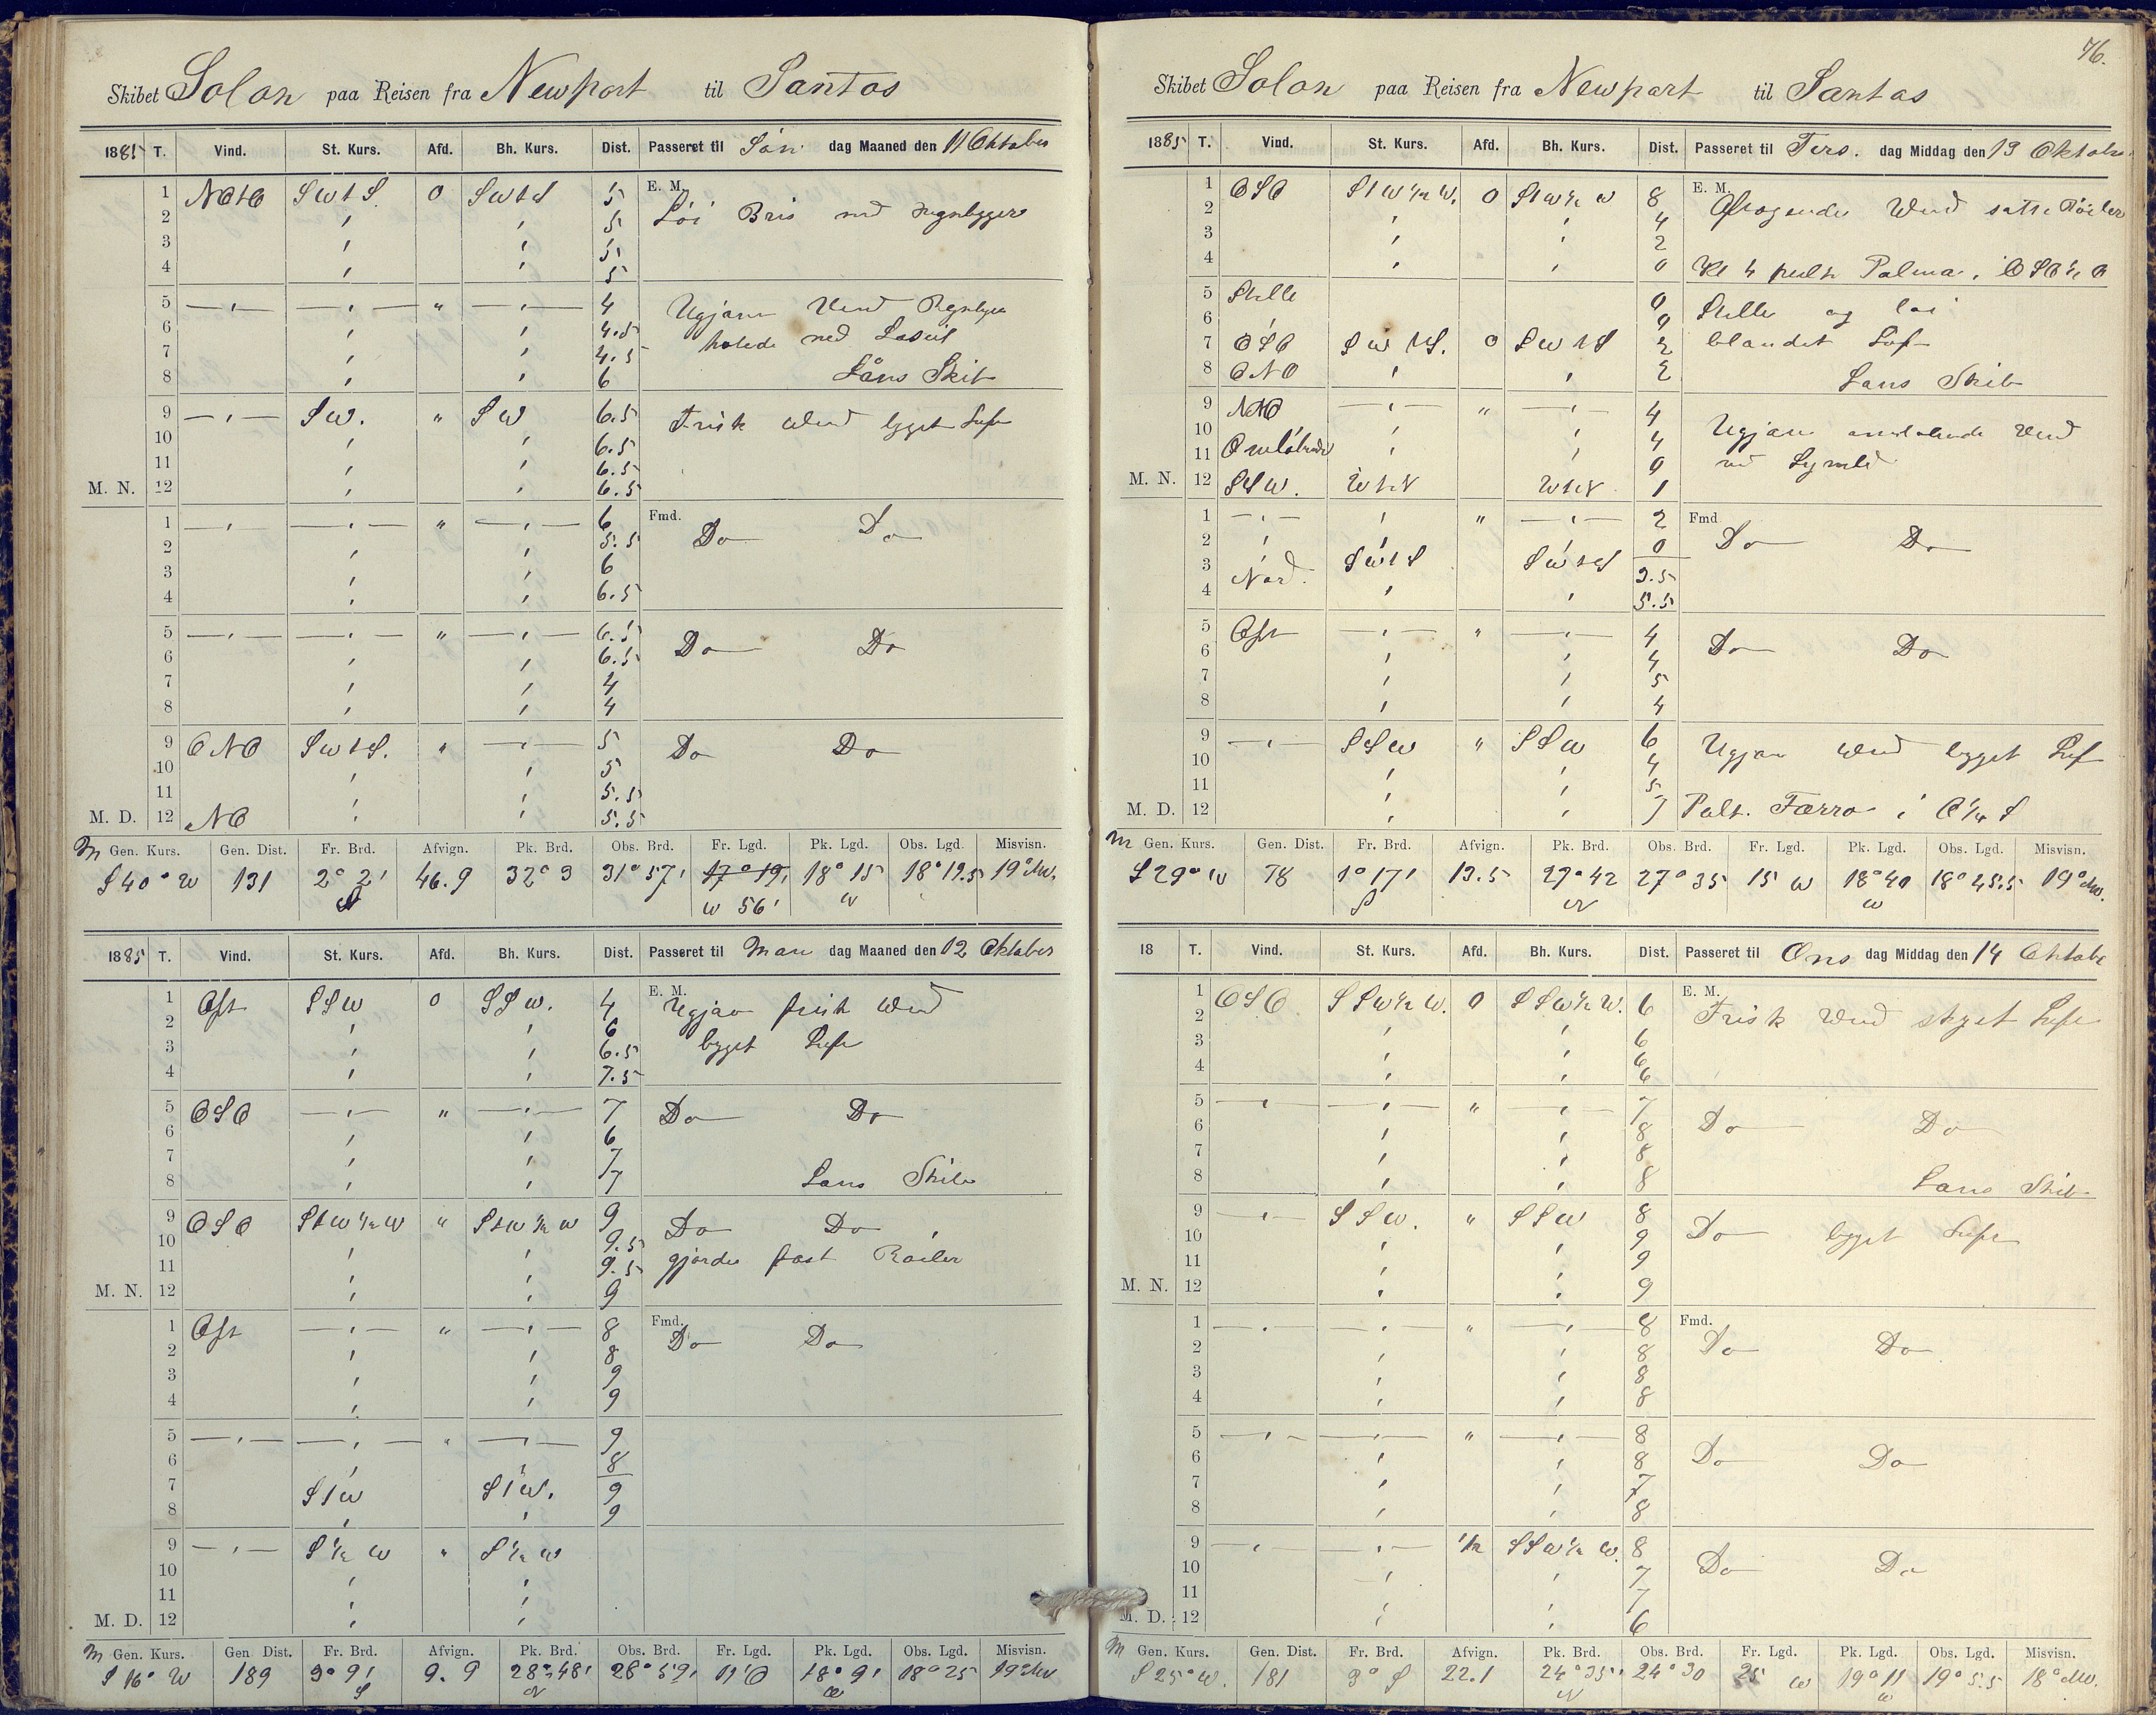 Skibet Solon paa Reisen fra Newport til Santos
1885 T. Vind. St. Kurs. Afd. Bh. Kurs. Dist. Passeret til Søn dag Maaned den 11 Oktober
1 NOtO SWtS. 0 SWtS 5 E. M.
2 5 Løi Bris med Regnbyger
3 5
4 5
5 4 Ugjævn Vind Regnbyger
6 4.5 halede ned
7 4.5
8 6 Låns Skib
9 SW. SW 6.5 Frisk Vind bygget Luft
10 6.5
11 6.5
M. N. 12 6.5
1 6 Fmd.
2 5.5 Do Do
3 6
4 6.5
5 6.5
6 6.5 Do Do
7 4
8 4
9 ONO SWtS. 5 Do Do
10 5
11 5.5
M. D. 12 NO 5.5
M Gen. Kurs. Gen. Dist. Fr. Brd. Afvign. Pk. Brd. Obs. Brd. Fr. Lgd. Pk. Lgd. Obs. Lgd. Misvisn.
S 40° W 131 2° 2' 46.9 32° 3 31° 57' 17° 19' 18° 15 18° 19.5 19° NW.
S W 56' W
1885 T. Vind. St. Kurs. Afd. Bh. Kurs. Dist. Passeret til Man dag Maaned den 12 Oktober
1 Ost SSW 0 SSW. 4 E. M.
2 6 Ugjævn frisk Vind
3 6.5 bygget Luft
4 7.5
5 OSO 7 Do Do
6 6
7 7
8 7 Lans Skib
9 OSO StW ½ W StW ½ W 9 Do Do
10 9.5
11 9.5 gjorde fast Røiler
M. N. 12 9
1 Ost 8 Fmd.
2 8 Do Do
3 9
4 9
5 9
6 8
7 StW StW. 9
8 9
9 S ½ W S ½ W
10
11
M. D. 12
M Gen. Kurs. Gen. Dist. Fr. Brd. Afvign. Pk. Brd. Obs. Brd. Fr. Lgd. Pk. Lgd. Obs. Lgd. Misvisn.
S 16° W 189 3° 9' 9.9 28° 48' 28° 59' 11' O 18° 9' 18° 25 19° NW
S N W
76.
Skibet Solon paa Reisen fra Newport til Santos
1885 T. Vind. St. Kurs. Afd. Bh. Kurs. Dist. Passeret til Tirs. dag Middag den 13 Oktober
1 OSO StW ½ W. 0 StW ½ W 8 E. M.
2 4 Vind satte Røiler
3 2
4 0 Kl 4 peilt Palma i OSO ½ O
5 Stille 0 Stille og løi
6 0
7 OSO SWtS. 0 SWtS 2 blandet Luft
8 ONO 2 Lans Skib
9 NO 4
10 4 Ugjævn omløbende Vind
11 Omløbende 0
M. N. 12 SSW. WtN WtN 1
1 2 Fmd
2 0 Do Do
3 Nord. SWtS SWtS 3.5
4 5.5
5 Ost 4
6 4 Do Do
7 5
8 4
9 SSW SSW 6 Ugjævn Vind bygget Luft
10 4
11 5
M. D. 12 7 Peilt. Færro i O ¼ S
M Gen. Kurs. Gen. Dist. Fr. Brd. Afvign. Pk. Brd. Obs. Brd. Fr. Lgd. Pk. Lgd. Obs. Lgd. Misvisn.
S 29° W 78 1° 17' 13.5 27° 42 27° 35 15 W 18° 40 18° 45.5 19° NW.
S N W
18 T. Vind. St. Kurs. Afd. Bh. Kurs. Dist. Passeret til Ons dag Middag den 14 Oktober
1 OSO SSW ½ W. 0 SSW ½ W. 6 E. M.
2 Frisk Vind skyet Luft
3 6
4 6
6
5 7
6 8 Do Do
7 8
8 8 Lans Skib
9 SSW. SSW 8
10 9 Do bygget Luft
11 9
M. N. 12 9
1 8 Fmd.
2 8 Do Do
3 8
4 8
5 8
6 8 Do Do
7 7
8 8
9 ½ SSW ½ W. 8
10 7 Do Do
11 7
M. D. 12 6
M Gen. Kurs. Gen. Dist. Fr. Brd. Afvign. Pk. Brd. Obs. Brd. Fr. Lgd. Pk. Lgd. Obs. Lgd. Misvisn.
S 25° W. 181 3° S 22.1 24° 35' 24° 30 25 W 19° 11 19° 5.5 18° NW.
N W